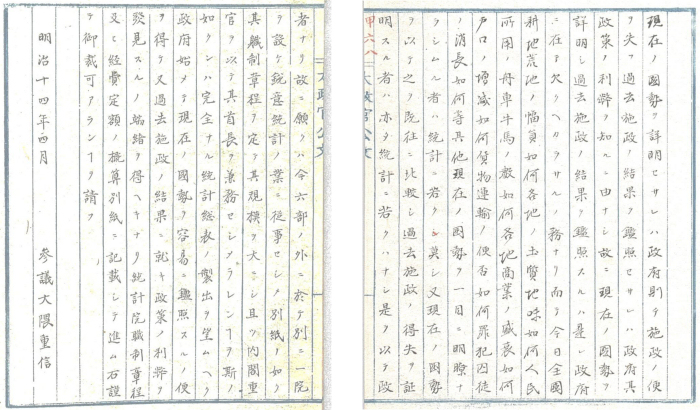 現在ノ國勢ヲ詳明セサレハ政府則チ施政ノ便
ヲ失フ過去施政ノ結果ヲ鑑照セサレハ政府其
政策ノ利弊ヲ知ルニ由ナシ故ニ現在ノ國勢ヲ
詳明シ過去施政ノ結果ヲ鑑照スルハ是レ政府
ニ在テ欠クヘカラサルノ務ナリ而テ今日全國
耕地荒地ノ幅員如何各地ノ土質地味如何人民
所用ノ舟車牛馬ノ数如何各地商業ノ盛衰如何
戸口ノ増減如何貨物運輸ノ便否如何罪犯囚徒
ノ消長如何等其他現在ノ國勢ヲ一目ニ明瞭ナ
ラシムル者ハ統計ニ若クハ莫シ又現在ノ國勢
ヲ以テ之ヲ既往ニ比較シ過去施政ノ得失ヲ証
明スル者ハ亦タ統計ニ若クハナシ是ヲ以テ政
甲六八
太政官公文
太政官公文
者ナリ故ニ願クハ今六部ノ外ニ於テ別ニ一院
ヲ設ケ鋭意統計ノ業ニ従事セシメ別紙ノ如ク
其職制章程ヲ定メ其規模ヲ大ニシ且ツ内閣重
官ヲ以テ其首長ヲ兼務セシメラレン丁ヲ斯ノ
如クンハ完全ナル統計総表ノ製出ヲ望ムヘク
政府始メテ現在ノ國勢ヲ容易ニ鑑照スルノ便
ヲ得ヘク又過去施政ノ結果ニ就キ政策ノ利弊ヲ
發見スルノ端緒ヲ得ヘキナリ統計院職制章程
及ヒ經費定額ノ概算別紙ニ記載シテ進ム右謹
テ御裁可アラン丁ヲ請フ
明治十四年四月
参議大隈重信